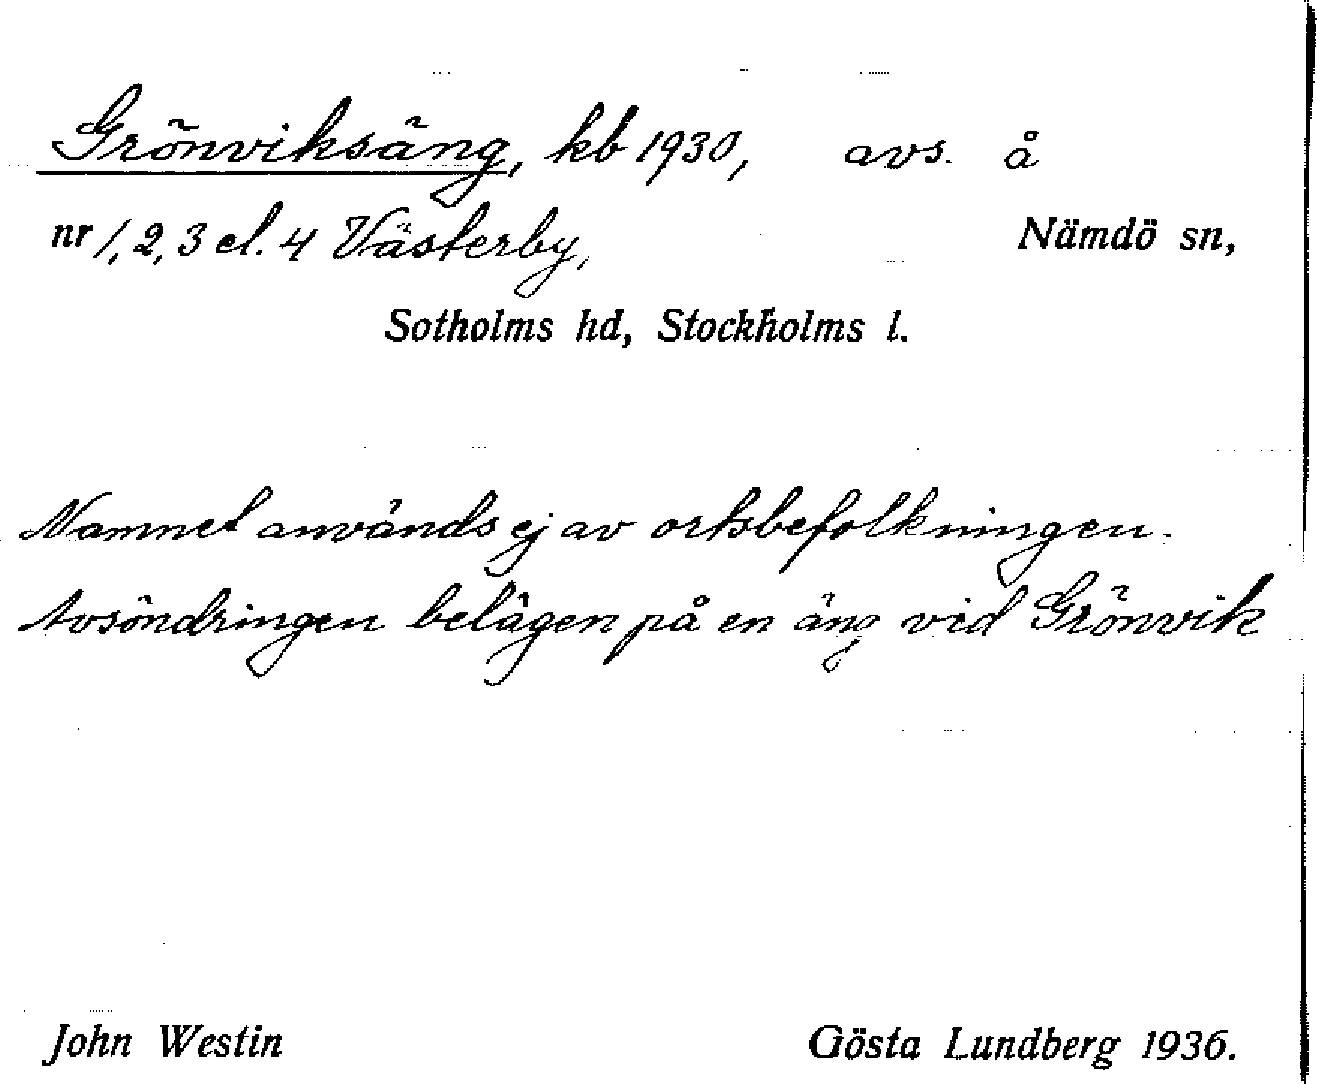 Grönviksäng, kb 1930, avs. å
nr 1, 2, 3 el. 4 Västerby, Nämdö sn,
Sotholms hd, Stockholms l.
Namnet används ej av ortsbefolkningen.
Avsöndringen belägen på en äng vid Grönvik
John Westin Gösta Lundberg 1936.